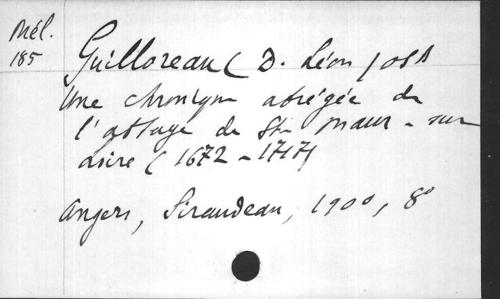 Mél.
185
Guilloreau (D. Léon) OSB
Une chronique abrégée de
l'abbaye de St Maur-sur
Loire (1672-1717)
Angers, Siraudeau, 1900, 8°